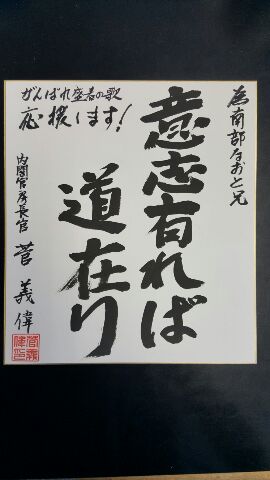 為南部なおと兄
意志有れば
道在り
がんばれ盛春の歌
応援します！
内閣官房長官 菅 義偉